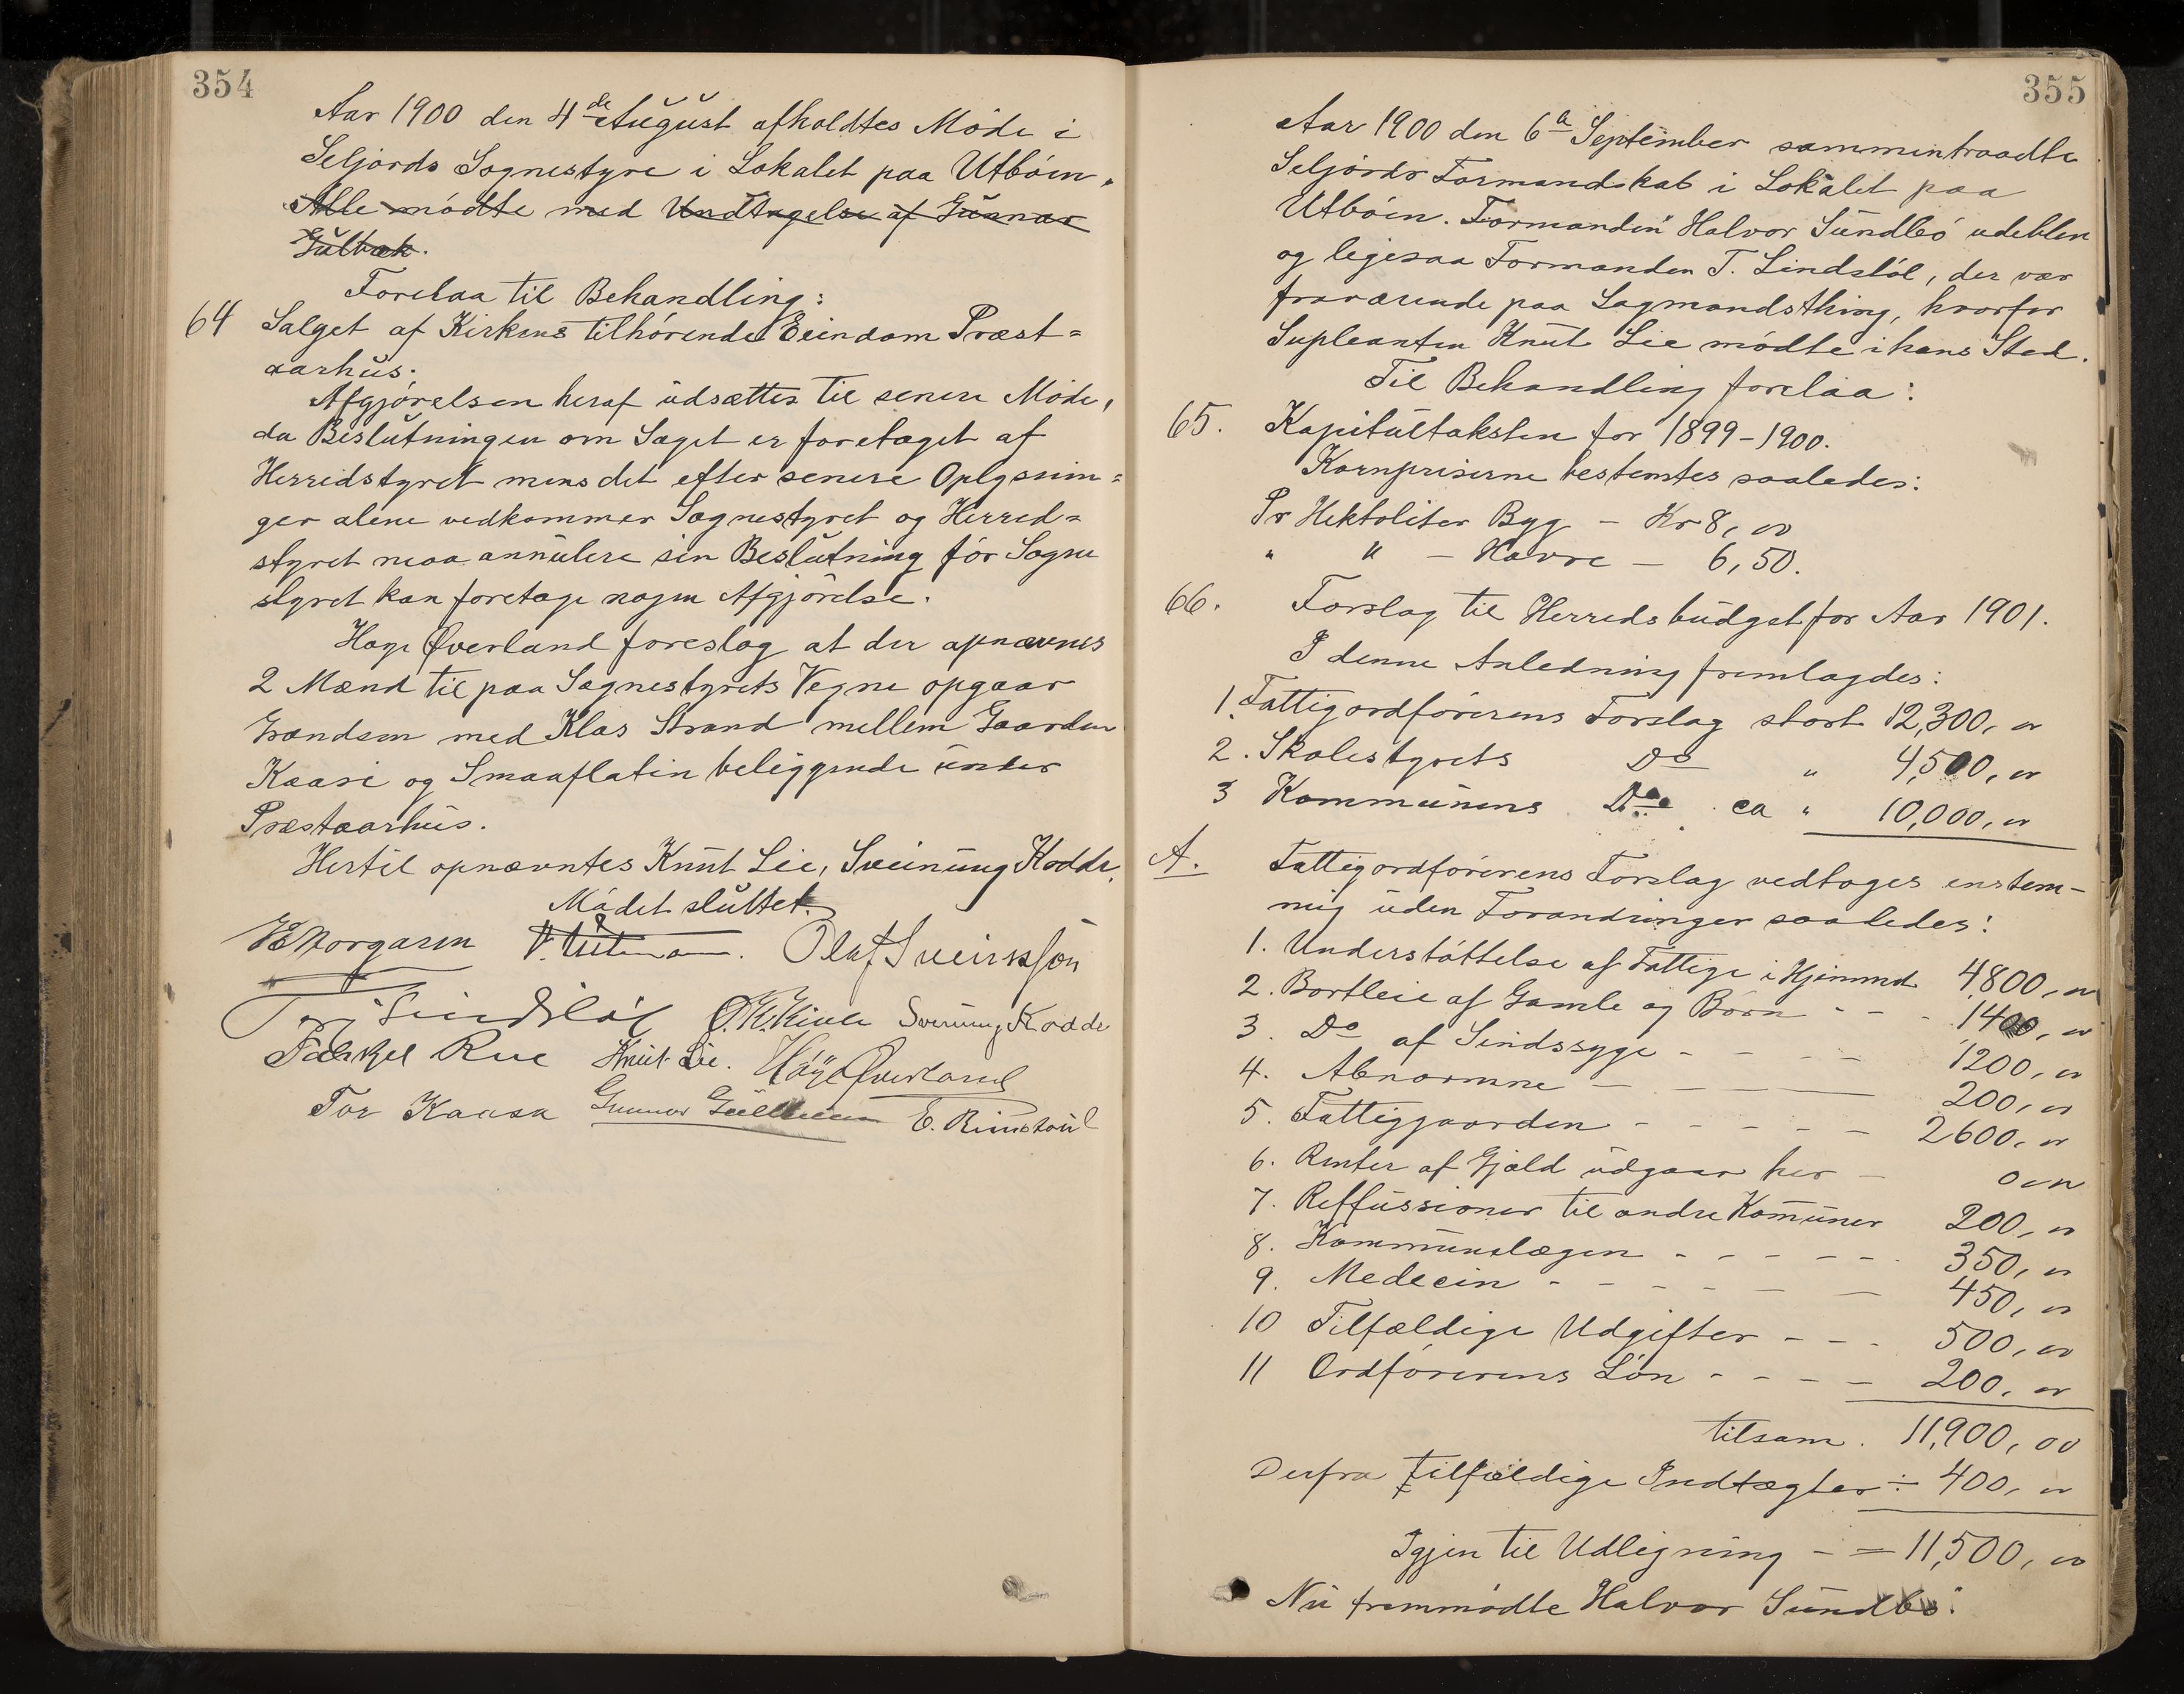 354
Aar 1900 den 4de August afholdtes Møde i
Seljords Sognestyre i Lokalet paa Utbøen.
Alle mødte med Undtagelse af Gunnar
Gulbæk.
Forelaa til Behandling:
64 Salget af Kirkens tilhørende Eiendom Præst=
aarhus.
Afgjørelsen heraf udsættes til senere Møde,
da Beslutningen om Saget er foretaget af
Herredstyret mens det efter senere Oplysnin=
ger alene vedkommer Sognestyret og Herred=
styret maa annulere sin Beslutning før Sogne
styret kan foretage nogen Afgjørelse.
Høye Øverland foreslog at der opnævnes
2 Mænd til paa Sognestyrets Vegne opgaar
Grændsen med Klas Strand mellem Gaarden
Kaasi og Smaaflatin beliggende under
Præstaarhus.
Hertil opnævntes Knut Lie, Sveinung Kodde.
Mødet sluttet.
Olaf Sveinsson
Sveinung Kodde
Tarkjel Rue Knut Lie. Høye Øverland
Tor Kaasa Gunnar
355
Aar 1900 den 6te September sammentraadte
Seljords Formandskab i Lokalet paa
Utbøen. Formanden Halvor Sundbø udeblev
og ligesaa Formanden T. Lindsløl, der var
fraværende paa Lagmandsthing, hvorfor
Supleanten Knut Lie mødte i hans Sted.
Til Behandling forelaa:
65. Kapitultaksten for 1899-1900.
Kornpriserne bestemtes saaledes:
Pr Hektoliter Byg - Kr 8, 00
" " - Havre - 6,50.
66. Forslag til Herredsbudget for Aar 1901.
I denne Anledning fremlagdes:
1. Fattigordførerens Forslag stort 12,300, 00
2. Skolestyrets Do " 4,500, 00
3 Kommunens Do ca " 10,000, 00
A. Fattigordførerens Forslag vedtoges enstem-
mig uden Forandringer saaledes:
1. Understøttelse af Fattige i Hjemmet 4,800, 00
2. Bortleie af Gamle og Børn - - - 1400, 00
3. Do af Sindssyge - - - - 1200, 00
4. Abnormne - - - 200, 00
5. Fattiggaarden - - - - - 2600, 00
6. Renter af Gjæld udgaar her - 0,00
7. Reffussioner til andre Komuner 200, 00
8. Kommunelægen - - - - - 350, 00
9. Medecin - - - - - - 450, 00
10 Tilfældige Udgifter - - - 500, 00
11 Ordførerens Løn - - - - 200, 00
tilsam. 11,900, 00
Derfra tilfældige Indtægter ÷ 400, 00
Igjen til Udligning - = 11,500, 00
Nu fremmødte Halvor Sundbø.